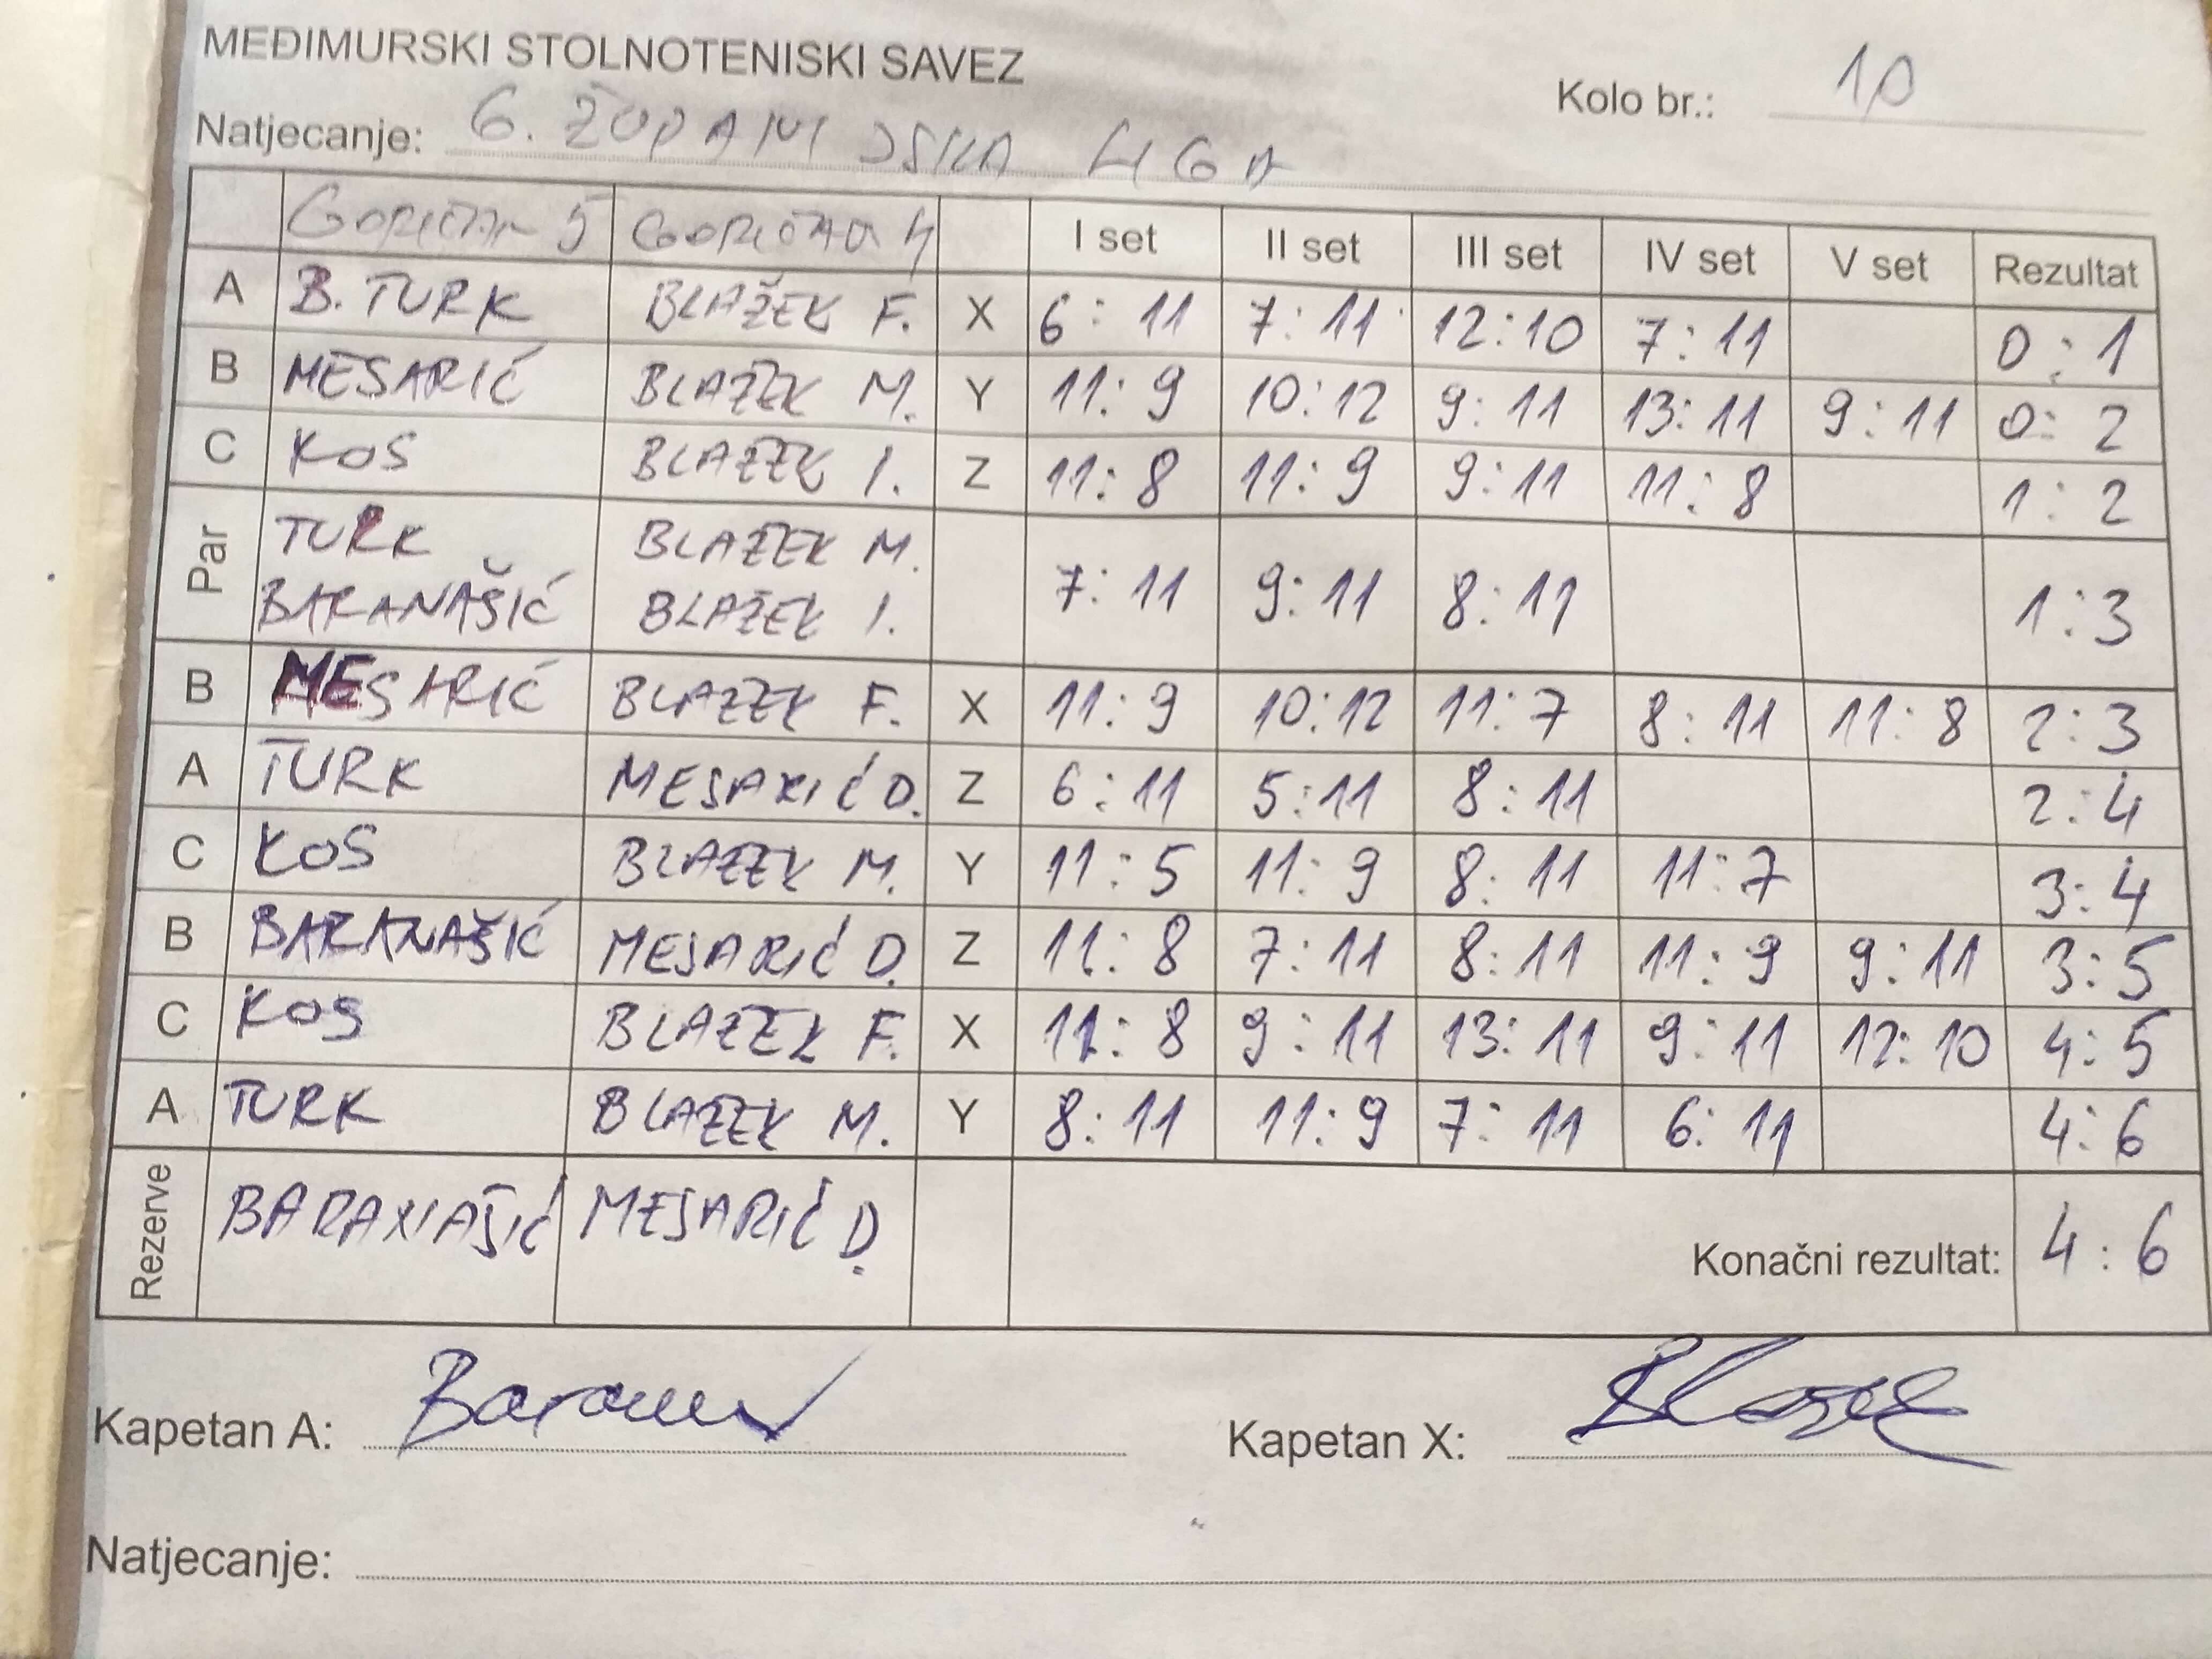 MEĐIMURSKI STOLNOTENISKI SAVEZ
Kolo br.: 10
Natjecanje: 6. ŽUPANIJSKA LIGA
GORIČAN 5 GORIČAN 4 I set II set III set IV set V set Rezultat
A B. TURK BLAŽEK F. X 6:11 7:11 12:10 7:11 0:1
B MESARIĆ BLAŽEK M. Y 11:9 10:12 9:11 13:11 9:11 0:2
C KOS BLAŽEK I. Z 11:8 11:9 9:11 11:8 1:2
Par TURK BLAŽEK M. 7:11 9:11 8:11 1:3
BARANAŠIĆ BLAŽEK I.
B MESARIĆ BLAŽEK F. X 11:9 10:12 11:7 8:11 11:8 2:3
A TURK MESARIĆ D. Z 6:11 5:11 8:11 2:4
C KOS BLAŽEK M. Y 11:5 11:9 8:11 11:7 3:4
B BARANAŠIĆ MESARIĆ D. Z 11:8 7:11 8:11 11:9 9:11 3:5
C KOS BLAŽEK F. X 11:8 9:11 13:11 9:11 12:10 4:5
A TURK BLAŽEK M. Y 8:11 11:9 7:11 6:11 4:6
Rezerve BARANAŠIĆ MESARIĆ D. Konačni rezultat: 4:6
Kapetan A: Kapetan X: Blažek
Natjecanje: